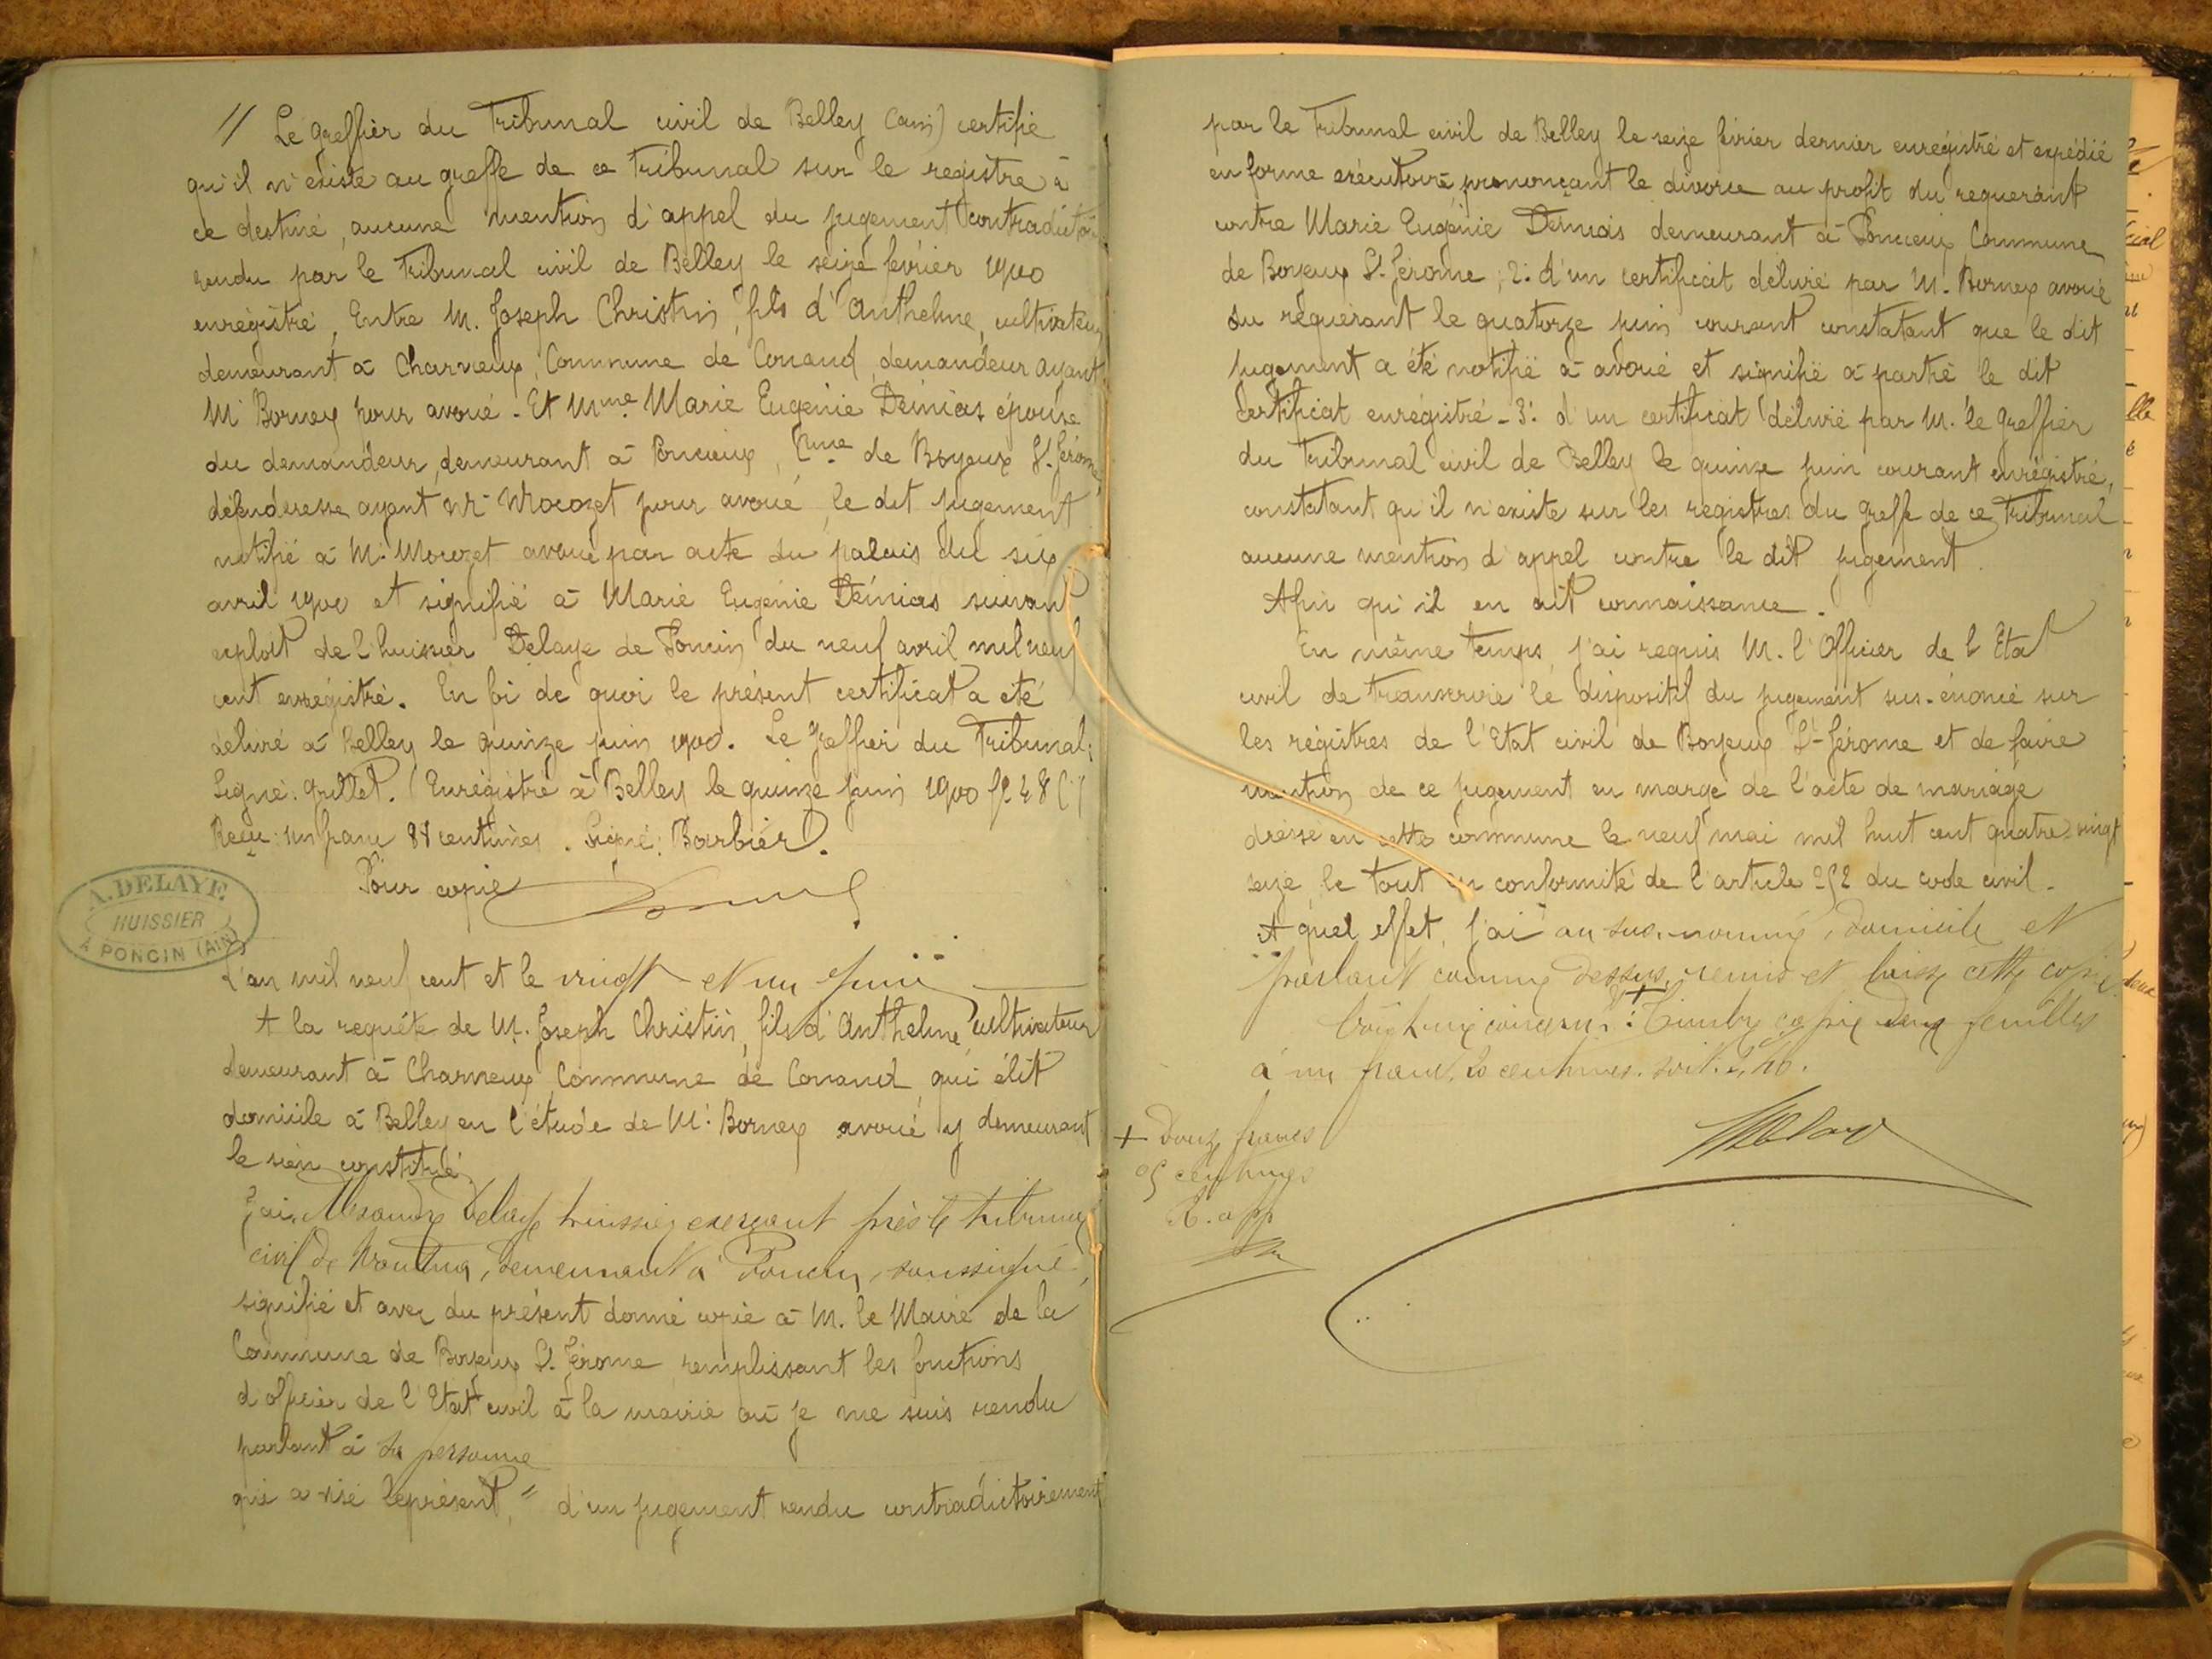 // Le greffier du Tribunal civil de Belley (ain) certifie
qu'il n'existe au greffe de ce Tribunal sur le registre à
ce destiné, aucune mention d'appel du jugement contradictoire
rendu par le Tribunal civil de Belley le seize février 1900
enregistré, Entre M. Joseph Christin, fils d'Anthelme, cultivateur
demeurant à Charveux, Commune de Conand, demandeur ayant
Me Bornex pour avoué. Et Mme Marie Eugénie Déinias épouse
du demandeur, demeurant à Poncieux, Cme de Boyeux St. Jérome,
défenderesse ayant Me Morozet pour avoué, le dit jugement
notifié à Me Morozet avoué par acte du palais du six
avril 1900 et signifié à Marie Eugénie Déinias suivant
exploit de l'huissier Delaye de Poncin du neuf avril mil neuf
cent enregistré. En foi de quoi le présent certificat a été
délivré à Belley le quinze juin 1900. Le Greffier du Tribunal;
Signé: Grillet. Enregistré à Belley le quinze juin 1900 f° 48
Reçu: un franc 88 centimes. Signé: Barbier.
Pour copie
A. DELAYE
HUISSIER
A PONCIN (AIN)
L'an mil neuf cent et le vingt et un juin
A la requête de M. Joseph Christin, fils d'Anthelme, cultivateur
demeurant à Charveux Commune de Conand qui élit
domicile à Belley en l'étude de Me Bornex avoué y demeurant
le sien constitué
J'ai, Alexandre Delaye huissier exerçant près le tribunal
civil de Nantua, demeurant à Poncin, soussigné,
signifié et avec du présent donné copie à M. le Maire de la
Commune de Boyeux St. Jérome remplissant les fonctions
d'officier de l'Etat civil à la mairie où je me suis rendu
parlant à sa personne
qui a visé le présent, d'un jugement rendu contradictoirement
par le Tribunal civil de Belley le seize février dernier enregistré et expédié
en forme exécutoire prononçant le divorce au profit du requérant
contre Marie Eugénie Déinias demeurant à Poncieux Commune
de Boyeux St. Jérome; 2: d'un certificat délivré par M. Bornex avoué
du requérant le quatorze juin courant constatant que le dit
jugement a été notifié à avoué et signifié à partie le dit
certificat enregistré - 3: d'un certificat délivré par M. le Greffier
du Tribunal civil de Belley le quinze juin courant enregistré,
constatant qu'il n'existe sur les registres du greffe de ce Tribunal
aucune mention d'appel contre le dit jugement.
Afin qu'il en ait connaissance.
En même temps, j'ai requis M. l'Officier de l'Etat
civil de transcrire le dispositif du jugement sus-énoncé sur
les régistres de l'Etat civil de Boyeux St-Jérome et de faire
mention de ce jugement en marge de l'acte de mariage
dréssé en cette commune le neuf mai mil huit cent quatre-vingt
seize, le tout en conformité de l'article 252 du code civil.
A quel effet, j'ai au sus-nommé, domicile et
parlant comme dessus, remis et laissé cette copie
Coût + Timbre copie deux feuilles
à un franc 20 centimes. soit. 2,40.
Delaye
+ Douze francs
05 centimes